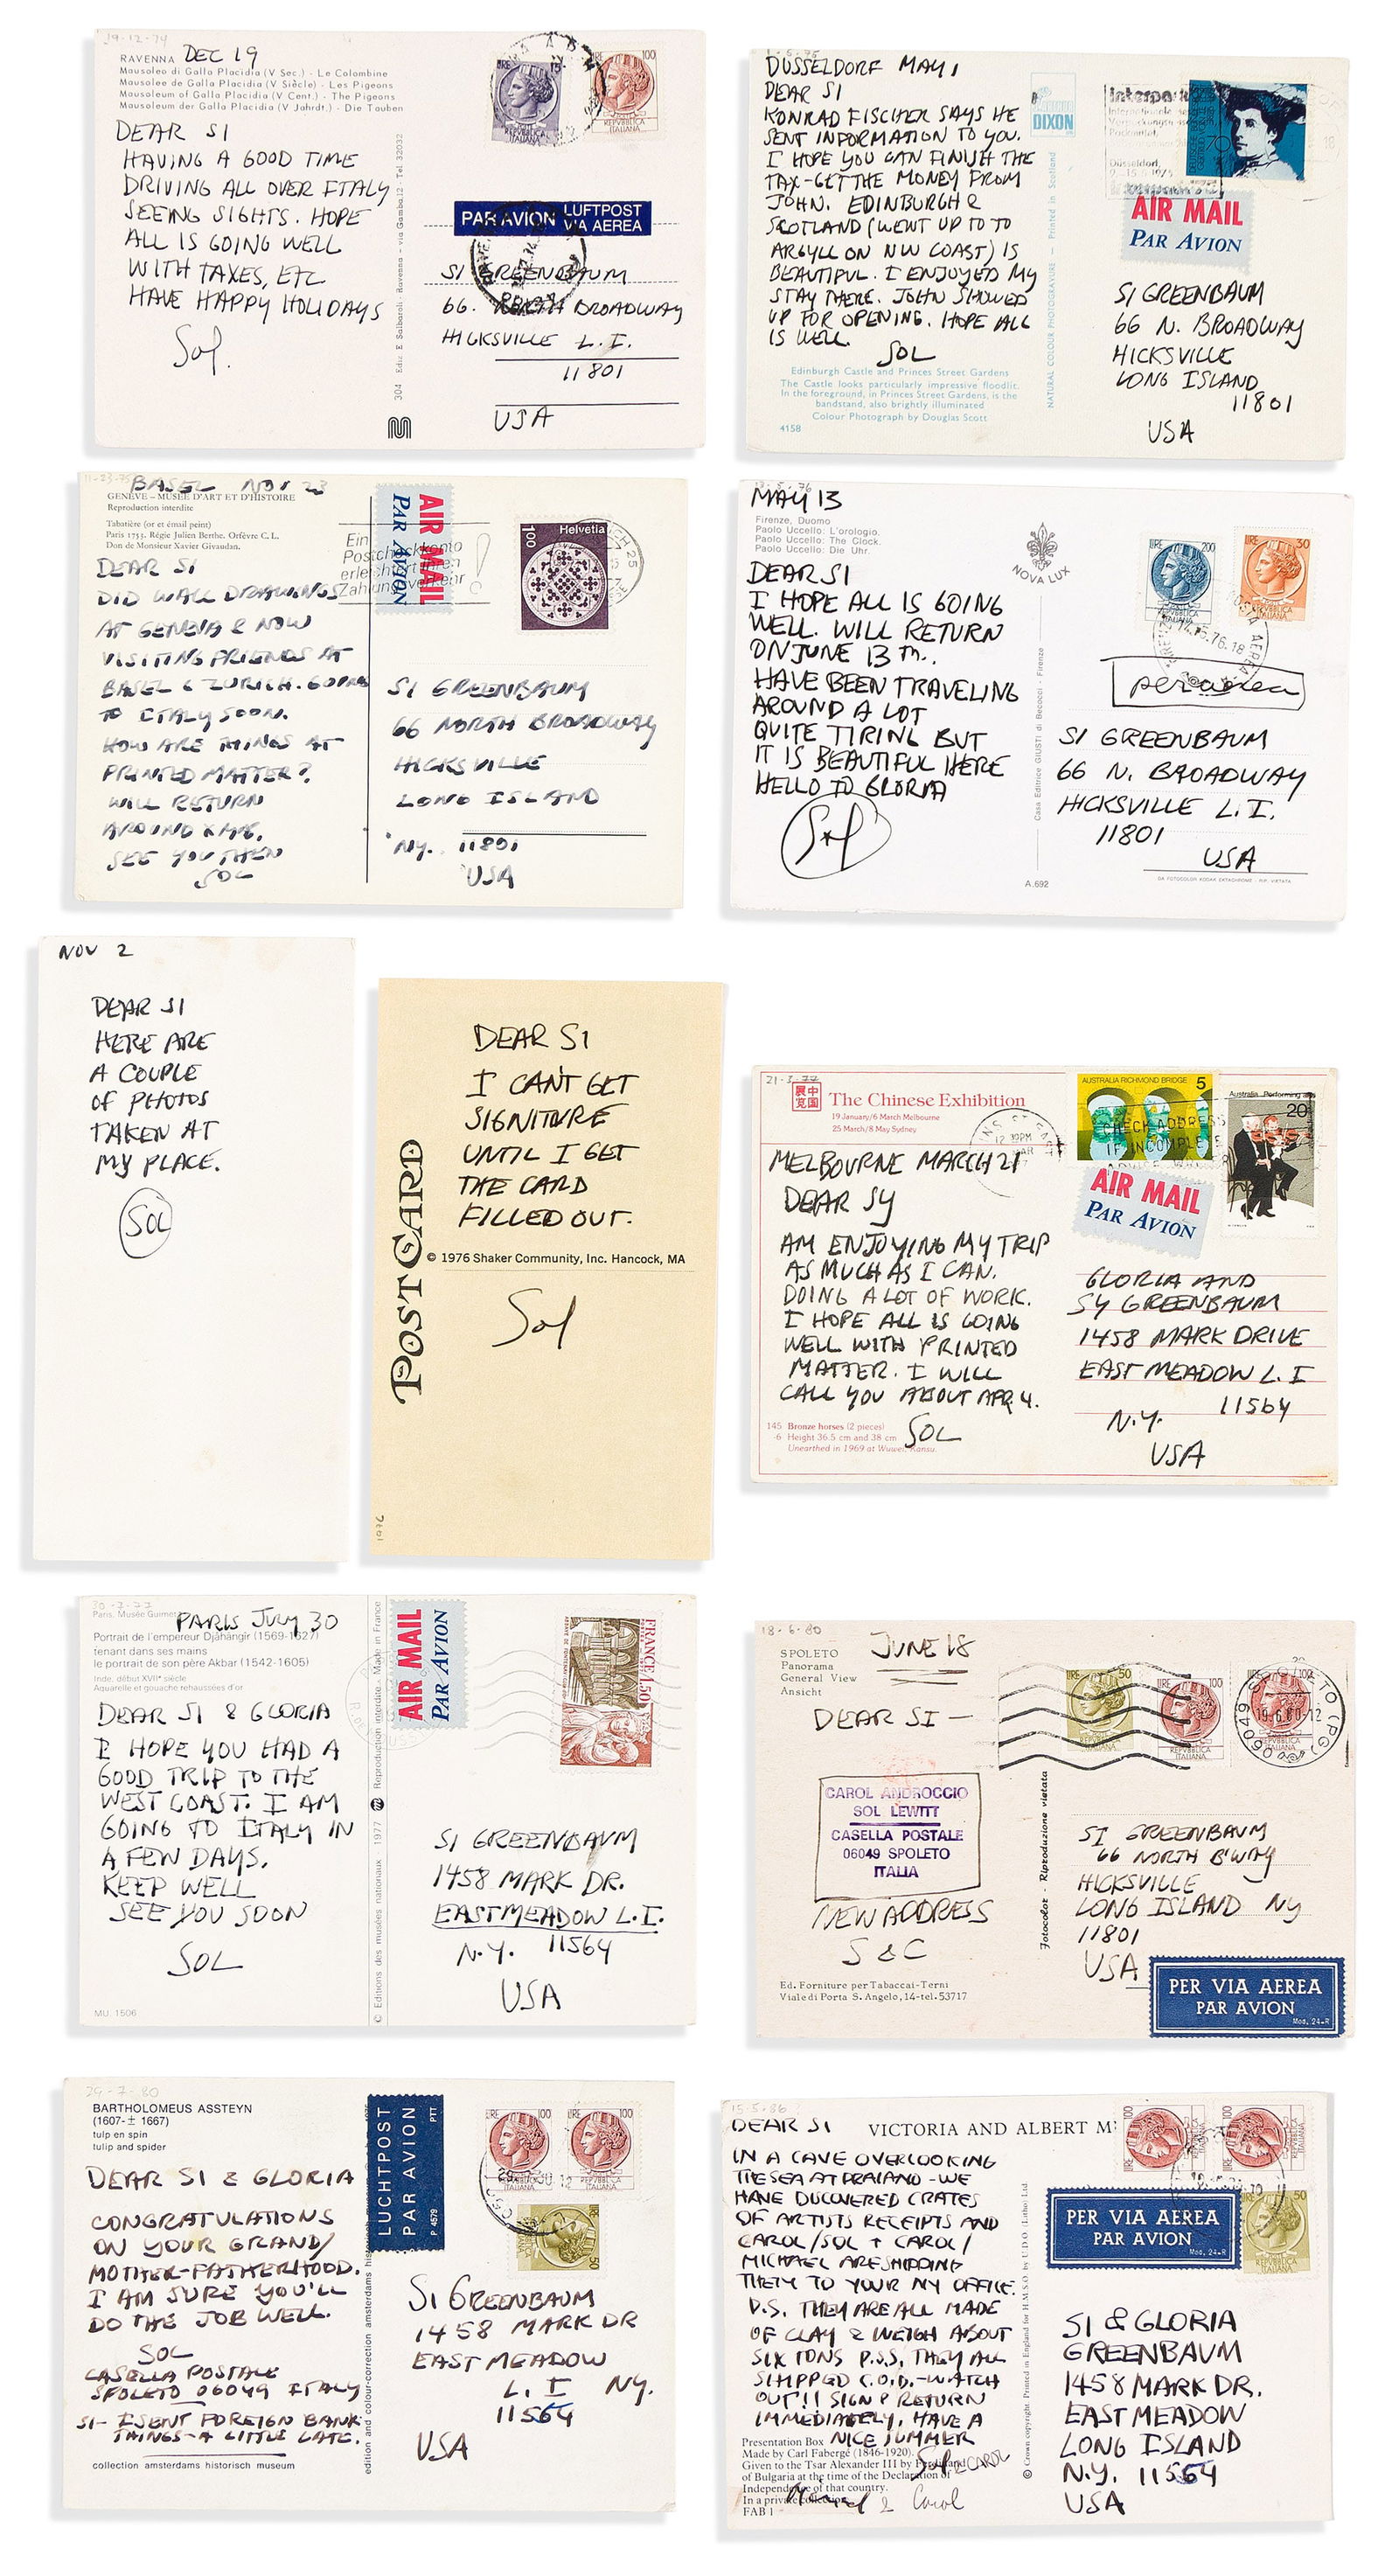 19-12-74
RAVENNA DEC 19
Mausoleo di Galla Placidia (V Sec.) - Le Colombine
Mausolee de Galla Placidia (V Siècle) - Les Pigeons
Mausoleum of Galla Placidia (V Cent.) - The Pigeons
Mausoleum der Galla Placidia (V Jahrdt.) - Die Tauben
DEAR SI
HAVING A GOOD TIME
DRIVING ALL OVER ITALY
SEEING SIGHTS. HOPE
ALL IS GOING WELL
WITH TAXES, ETC
HAVE HAPPY HOLIDAYS
Sol.
304 Ediz. E. Salbaroli - Ravenna - via Gamba, 12 - Tel. 32032
LIRE 100
REPVBBLICA ITALIANA
PAR AVION LUFTPOST VIA AEREA
SI GREENBAUM
66. NORTH BROADWAY
HICKSVILLE L.I.
11801
USA
1-5-75
DÜSSELDORF MAY 1
DEAR SI
KONRAD FISCHER SAYS HE
SENT INFORMATION TO YOU.
I HOPE YOU CAN FINISH THE
TAX-GET THE MONEY FROM
JOHN. EDINBURGH &
SCOTLAND (WENT UP TO TO
ARGYLL ON NW COAST) IS
BEAUTIFUL. I ENJOYED MY
STAY THERE. JOHN SHOWED
UP FOR OPENING. HOPE ALL
IS WELL.
SOL
Edinburgh Castle and Princes Street Gardens
The Castle looks particularly impressive floodlit.
In the foreground, in Princes Street Gardens, is the
bandstand, also brightly illuminated
Colour Photograph by Douglas Scott
4158
DIXON
NATURAL COLOUR PHOTOGRAVURE — Printed in Scotland
Düsseldorf,
70
AIR MAIL
PAR AVION
SI GREENBAUM
66 N. BROADWAY
HICKSVILLE
LONG ISLAND
11801
USA
11-23-75
BASEL NOV 23
GENÈVE – MUSÉE D'ART ET D'HISTOIRE
Reproduction interdite
Tabatière (or et émail peint)
Paris 1753. Régie Julien Berthe. Orfèvre C. L.
Don de Monsieur Xavier Givaudan.
DEAR SI
DID WALL DRAWINGS
AT GENEVA & NOW
VISITING FRIENDS AT
BASEL & ZURICH. GOING
TO ITALY SOON.
HOW ARE THINGS AT
PRINTED MATTER?
WILL RETURN
AROUND XMAS.
SEE YOU THEN
SOL
AIR MAIL
PAR AVION
Ein
Postcheckkonto
erleichtert Ihren
Zahlungsverkehr
!
Helvetia
100
SI GREENBAUM
66 NORTH BROADWAY
HICKSVILLE
LONG ISLAND
NY. 11801
USA
MAY 13
Firenze, Duomo
Paolo Uccello: L'orologio.
Paolo Uccello: The Clock.
Paolo Uccello: Die Uhr.
NOVA LUX
DEAR SI
I HOPE ALL IS GOING
WELL. WILL RETURN
ON JUNE 13TH.
HAVE BEEN TRAVELING
AROUND A LOT
QUITE TIRING BUT
IT IS BEAUTIFUL HERE
HELLO TO GLORIA
Sol
Casa Editrice GIUSTI di Becocci - Firenze
A.692
LIRE 200
LIRE 30
14.5.76.18
per aerea
SI GREENBAUM
66 N. BROADWAY
HICKSVILLE L.I.
11801
USA
DA FOTOCOLOR KODAK EKTACHROME - RIP. VIETATA
NOV 2
DEAR SI
HERE ARE
A COUPLE
OF PHOTOS
TAKEN AT
MY PLACE.
SOL
POSTCARD
DEAR SI
I CAN'T GET
SIGNITURE
UNTIL I GET
THE CARD
FILLED OUT.
© 1976 Shaker Community, Inc. Hancock, MA
Sol
1976
21-3-77
展中
览国
The Chinese Exhibition
19 January/6 March Melbourne
25 March/8 May Sydney
MELBOURNE MARCH 21
DEAR SY
AM ENJOYING MY TRIP
AS MUCH AS I CAN.
DOING A LOT OF WORK.
I HOPE ALL IS GOING
WELL WITH PRINTED
MATTER. I WILL
CALL YOU ABOUT APR 4.
SOL
145 Bronze horses (2 pieces)
-6 Height 36.5 cm and 38 cm
Unearthed in 1969 at Wuwei, Kansu.
AUSTRALIA RICHMOND BRIDGE 5
CHECK ADDRESS
IF INCOMPLETE
Australia Performing
20
AIR MAIL
PAR AVION
GLORIA AND
SY GREENBAUM
1458 MARK DRIVE
EAST MEADOW L.I
11564
N.Y.
USA
30-7-77
Paris, Musée Guimet
PARIS JULY 30
Portrait de l'empereur Djâhangir (1569-1627)
tenant dans ses mains
le portrait de son père Akbar (1542-1605)
Inde, début XVIIe siècle
Aquarelle et gouache rehaussées d'or
DEAR SI & GLORIA
I HOPE YOU HAD A
GOOD TRIP TO THE
WEST COAST. I AM
GOING TO ITALY IN
A FEW DAYS.
KEEP WELL
SEE YOU SOON
SOL
MU. 1506
© Editions des musées nationaux - 1977 Reproduction interdite - Made in France
AIR MAIL
PAR AVION
FRANCE 1,50
SI GREENBAUM
1458 MARK DR.
EAST MEADOW L.I.
N.Y. 11564
USA
18-6-80
SPOLETO
Panorama
General View
Ansicht
JUNE 18
DEAR SI —
CAROL ANDROCCIO
SOL LEWITT
CASELLA POSTALE
06049 SPOLETO
ITALIA
NEW ADDRESS
S & C
Ed. Forniture per Tabaccai-Terni
Viale di Porta S. Angelo, 14-tel. 53717
Fotocolor - Riproduzione vietata
LIRE 50
LIRE 100
19.6.80-12
SI GREENBAUM
66 NORTH B'WAY
HICKSVILLE
LONG ISLAND NY
11801
USA
PER VIA AEREA
PAR AVION
Mod. 24-R
29-7-80
BARTHOLOMEUS ASSTEYN
(1607-± 1667)
tulp en spin
tulip and spider
DEAR SI & GLORIA
CONGRATULATIONS
ON YOUR GRAND/
MOTHER-FATHERHOOD.
I AM SURE YOU'LL
DO THE JOB WELL.
SOL
CASELLA POSTALE
SPOLETO 06049 ITALY
SI- I SENT FOREIGN BANK
THINGS-A LITTLE LATE.
collection amsterdams historisch museum
LUCHTPOST
PAR AVION
PTT
P 4579
LIRE 100
100
50
SI GREENBAUM
1458 MARK DR
EAST MEADOW
L.I NY.
11564
USA
15-5-86
DEAR SI
VICTORIA AND ALBERT M
IN A CAVE OVERLOOKING
THE SEA AT PRAIANO - WE
HAVE DISCOVERED CRATES
OF ARTISTS RECEIPTS AND
CAROL/SOL + CAROL/
MICHAEL ARE SHIPPING
THEM TO YOUR NY OFFICE.
P.S. THEY ARE ALL MADE
OF CLAY & WEIGH ABOUT
SIX TONS P.S.S. THEY ALL
SHIPPED C.O.D.-WATCH
OUT!! SIGN & RETURN
IMMEDIATELY, HAVE A
NICE SUMMER
Sol & CAROL
Michael & Carol
Presentation Box
Made by Carl Fabergé (1846-1920).
Given to the Tsar Alexander III by Ferdinand
of Bulgaria at the time of the Declaration of
Independence of that country.
In a private collection
FAB 1
© Crown copyright. Printed in England for H.M.S.O. by U.D.O. (Litho) Ltd.
LIRE 100
100
50
PER VIA AEREA
PAR AVION
Mod. 24-R
SI & GLORIA
GREENBAUM
1458 MARK DR.
EAST MEADOW
LONG ISLAND
N.Y. 11554
USA